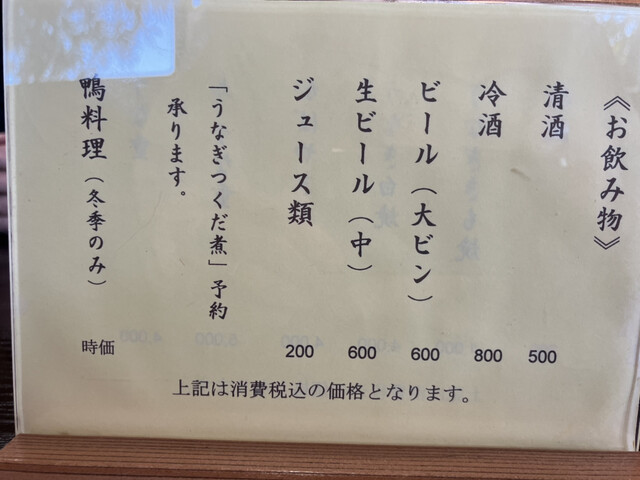 《お飲み物》
清酒 500
冷酒 800
ビール（大ビン） 600
生ビール（中） 600
ジュース類 200
「うなぎつくだ煮」予約
承ります。
鴨料理（冬季のみ） 時価
上記は消費税込の価格となります。